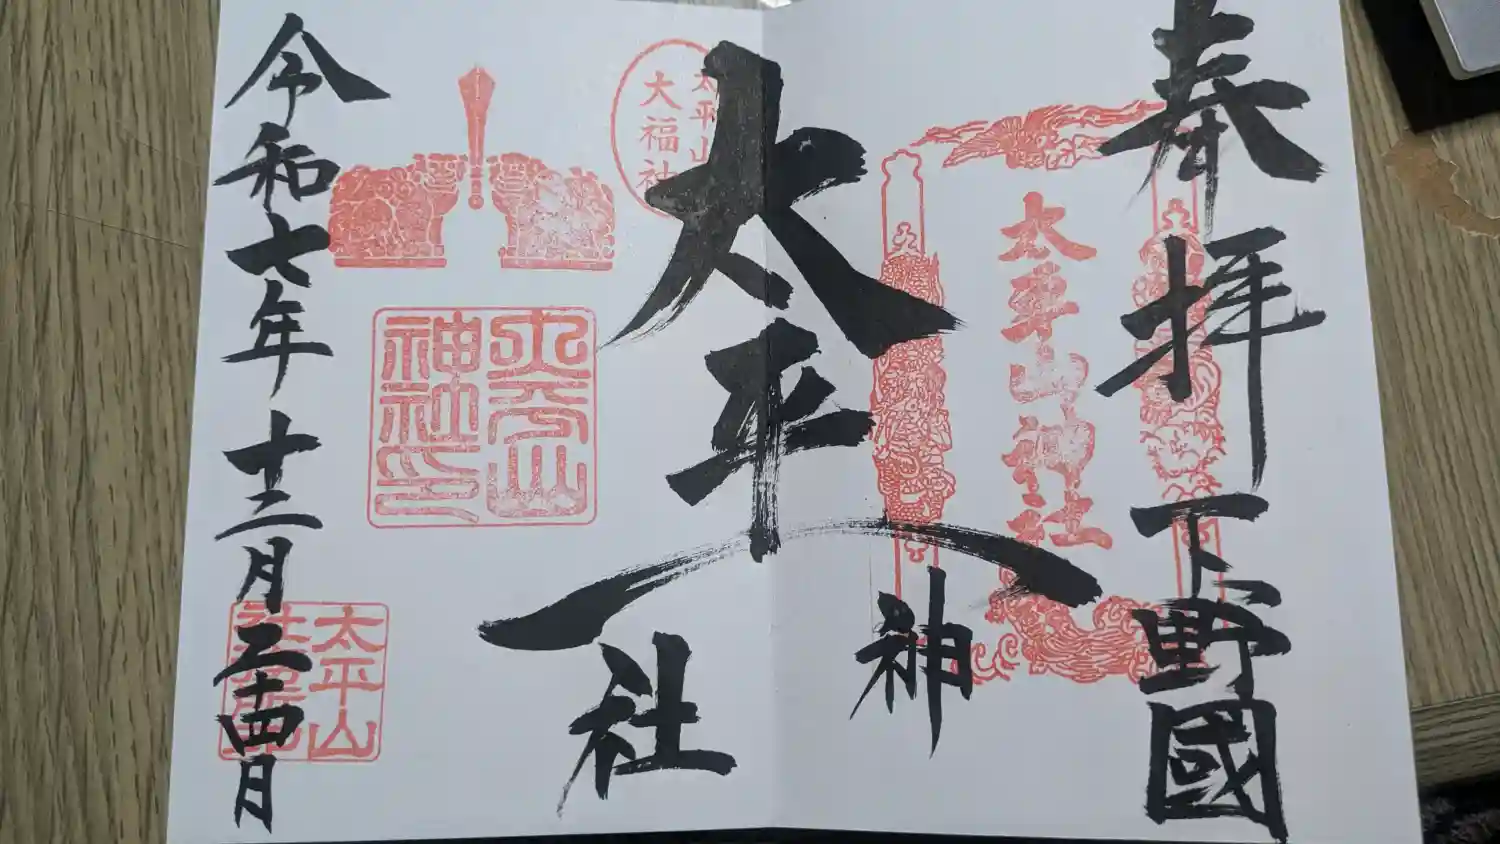 奉拝 下野國
太平山神社
太平山神社
太平山
大福社
太平山
神社印
令和七年十二月二十四日
太平山
社務所印